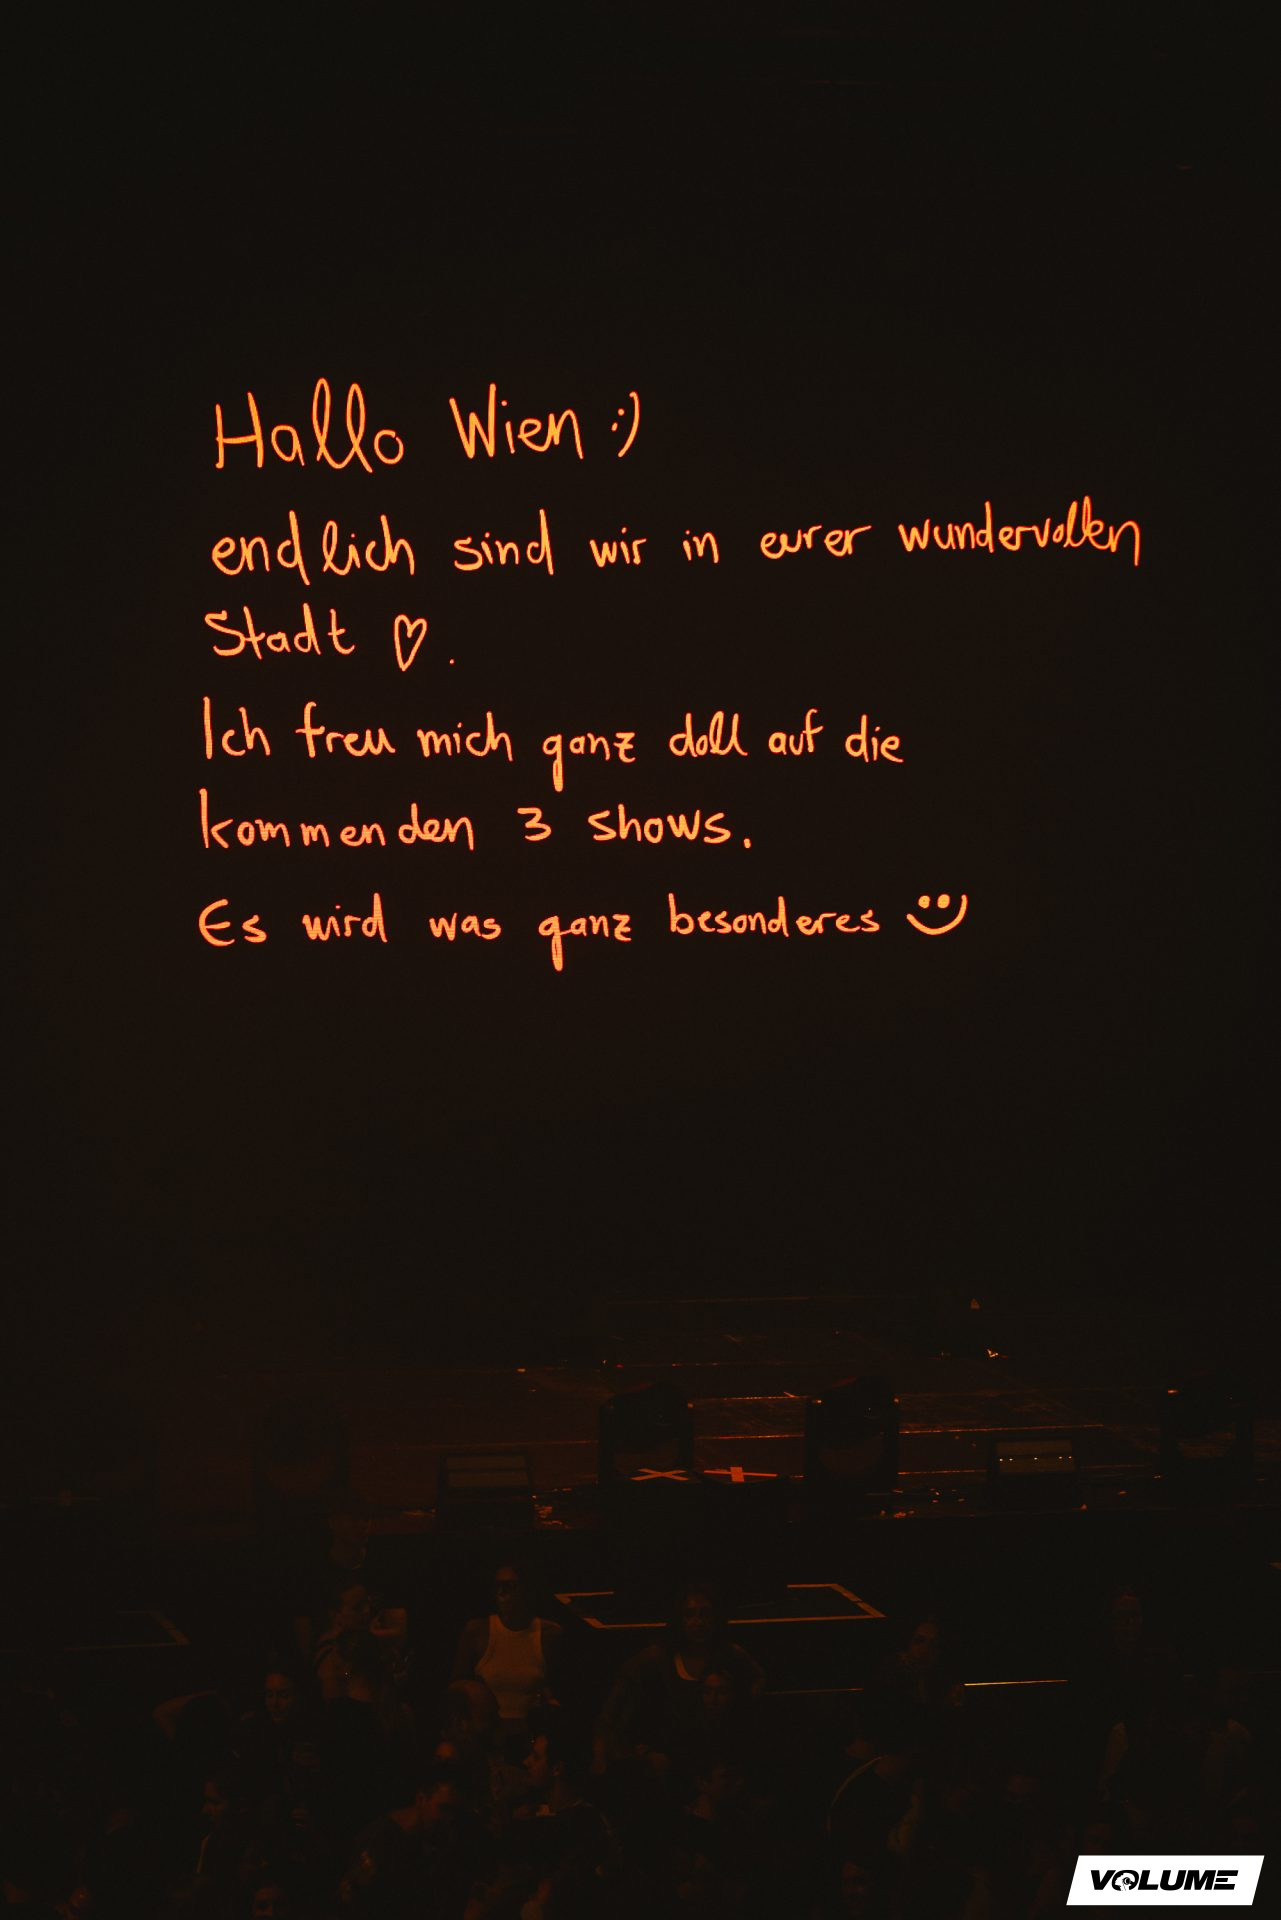 Hallo Wien :)
endlich sind wir in eurer wundervollen
Stadt ♡.
Ich freu mich ganz doll auf die
kommenden 3 shows.
Es wird was ganz besonderes ☺
VOLUME